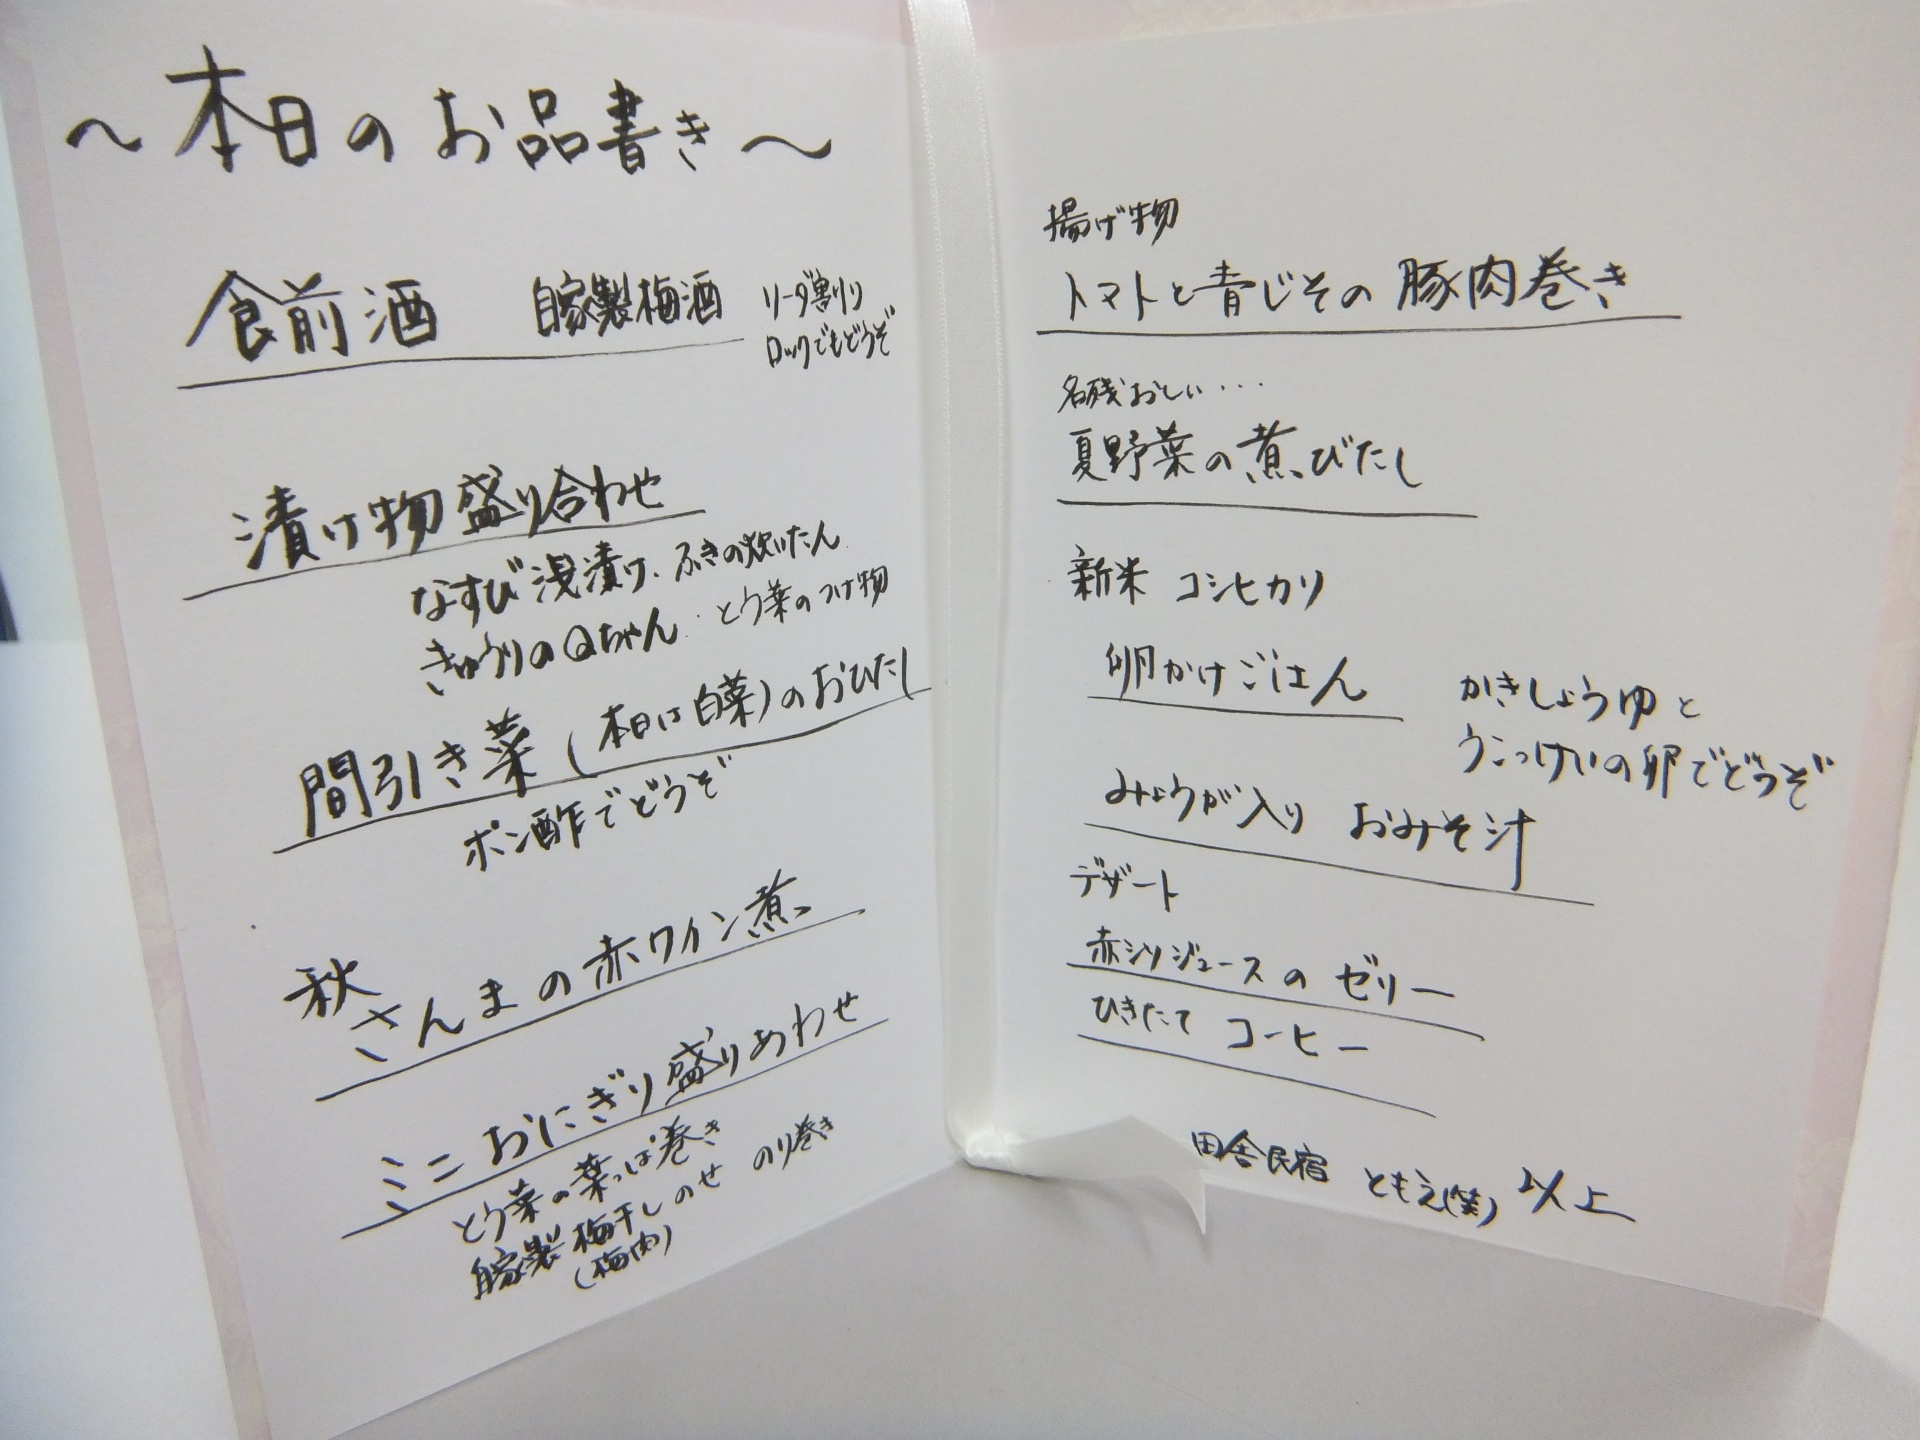 ～本日のお品書き～
食前酒 自家製梅酒 ソーダ割り
ロックでもどうぞ
漬け物盛り合わせ
なすび浅漬け、ふきの炊いたん
きゅうりのQちゃん、とう菜のつけ物
間引き菜(本日は白菜)のおひたし
ポン酢でどうぞ
秋
さんまの赤ワイン煮
ミニおにぎり盛りあわせ
とう菜の葉っぱ巻き のり巻き
自家製梅干しのせ
(梅肉)
揚げ物
トマトと青じその豚肉巻き
名残おしい・・・
夏野菜の煮びたし
新米 コシヒカリ
卵かけごはん かきしょうゆと
うこっけいの卵でどうぞ
みょうが入り おみそ汁
デザート
赤シソジュースの ゼリー
ひきたて コーヒー
田舎民宿 ともえ(笑) 以上